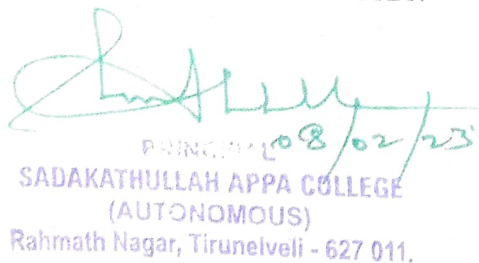 PRINCIPAL 08/02/23
SADAKATHULLAH APPA COLLEGE
(AUTONOMOUS)
Rahmath Nagar, Tirunelveli - 627 011.